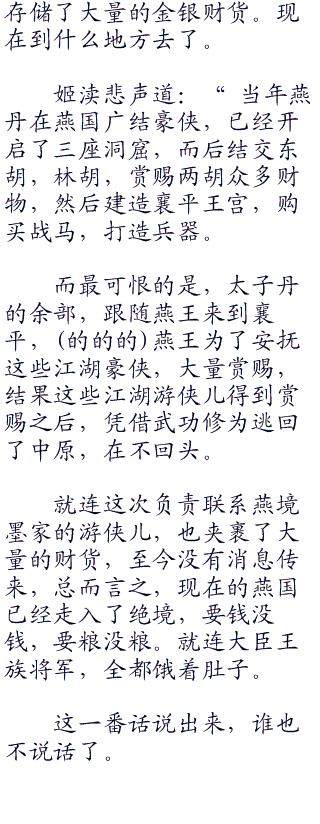 存储了大量的金银财货。现
在到什么地方去了。
姬渎悲声道：“ 当年燕
丹在燕国广结豪侠，已经开
启了三座洞窟，而后结交东
胡，林胡，赏赐两胡众多财
物，然后建造襄平王宫，购
买战马，打造兵器。
而最可恨的是，太子丹
的余部，跟随燕王来到襄
平，(的的的)燕王为了安抚
这些江湖豪侠，大量赏赐，
结果这些江湖游侠儿得到赏
赐之后，凭借武功修为逃回
了中原，在不回头。
就连这次负责联系燕境
墨家的游侠儿，也夹裹了大
量的财货，至今没有消息传
来，总而言之，现在的燕国
已经走入了绝境，要钱没
钱，要粮没粮。就连大臣王
族将军，全都饿着肚子。
这一番话说出来，谁也
不说话了。